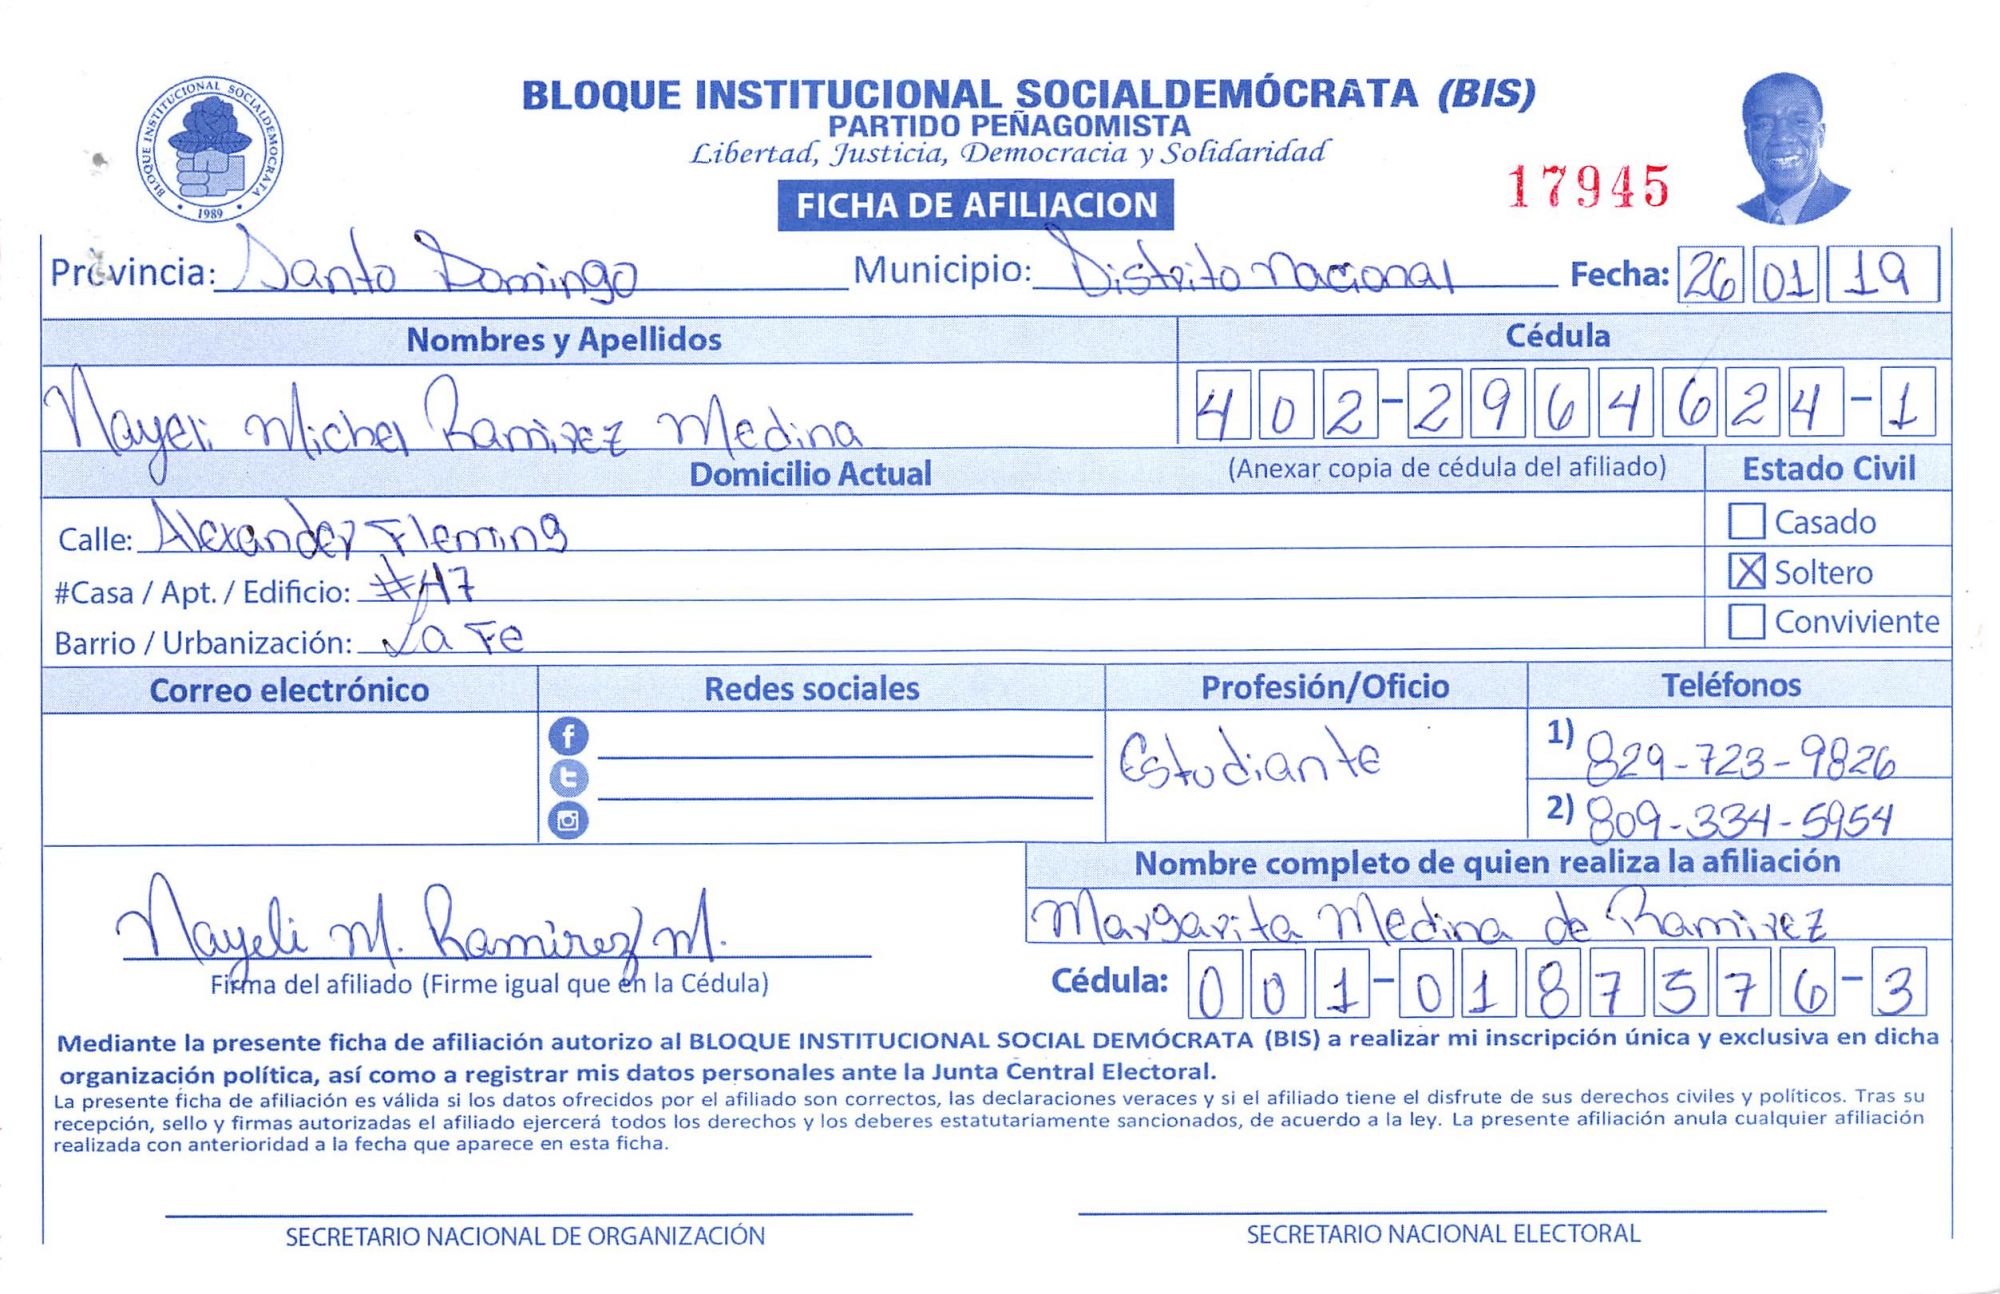 BLOQUE INSTITUCIONAL SOCIALDEMOCRATA
1989
BLOQUE INSTITUCIONAL SOCIALDEMÓCRATA (BIS)
PARTIDO PEÑAGOMISTA
Libertad, Justicia, Democracia y Solidaridad
FICHA DE AFILIACION
17945
Provincia: Santo Domingo Municipio: Distrito Nacional Fecha: 26 01 19
Nombres y Apellidos Cédula
Nayeli Michel Ramirez Medina 402-2964624-1
Domicilio Actual (Anexar copia de cédula del afiliado) Estado Civil
Calle: Alexander Fleming
Casado
#Casa / Apt. / Edificio: #47
X Soltero
Barrio / Urbanización: La Fe
Conviviente
Correo electrónico Redes sociales Profesión/Oficio Teléfonos
Estudiante 1) 829-723-9826
2) 809-334-5954
Nombre completo de quien realiza la afiliación
Nayeli M. Ramirez M. Margarita Medina de Ramirez
Firma del afiliado (Firme igual que en la Cédula) Cédula: 001-0187576-3
Mediante la presente ficha de afiliación autorizo al BLOQUE INSTITUCIONAL SOCIAL DEMÓCRATA (BIS) a realizar mi inscripción única y exclusiva en dicha
organización política, así como a registrar mis datos personales ante la Junta Central Electoral.
La presente ficha de afiliación es válida si los datos ofrecidos por el afiliado son correctos, las declaraciones veraces y si el afiliado tiene el disfrute de sus derechos civiles y políticos. Tras su
recepción, sello y firmas autorizadas el afiliado ejercerá todos los derechos y los deberes estatutariamente sancionados, de acuerdo a la ley. La presente afiliación anula cualquier afiliación
realizada con anterioridad a la fecha que aparece en esta ficha.
SECRETARIO NACIONAL DE ORGANIZACIÓN SECRETARIO NACIONAL ELECTORAL